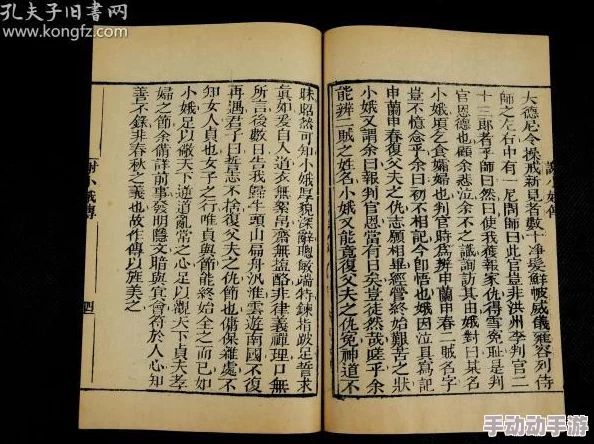 孔夫子旧書网
www.kongfz.com
謝小娥傳
大德尼令操戒新見者數十淨髮鮮帔威儀雍容列侍
師之左右中有一尼問師曰此官豈非洪州李判官二
十三郎者乎師曰然曰使我獲報家仇得雪冤耻是判
官恩德也顧余悲泣余不之識詢訪其由娥對曰某名
小娥頃乞食孀婦也判官時爲辨申蘭申春二賊名字
豈不憶念乎余曰初不相記今卽悟也娥因泣具寫記
申蘭申春復父夫之仇志願相畢經營終始艱苦之狀
小娥又謂余曰報判官恩當有日矣豈徒然哉嗟乎余
能辨二賊之姓名小娥又能竟復父夫之仇冤神道不
昧昭然可知小娥厚貌深辭聰敏端特鍊指跛足誓求
眞如爰自入道衣無絮帛齋無鹽酪非律義禪理口無
所言後數日告我歸牛頭山扁舟汎淮雲遊南國不復
再遇君子曰誓志不捨復父夫之仇節也傭保雜處不
知女人貞也女子之行唯貞與節能終始全之而已如
小娥足以儆天下逆道亂常之心足以觀天下貞夫孝
婦之節余備詳前事發明隱文暗與冥會符於人心知
善不錄非春秋之義也故作傳以旌美之
謝小娥傳
四
手动动手游